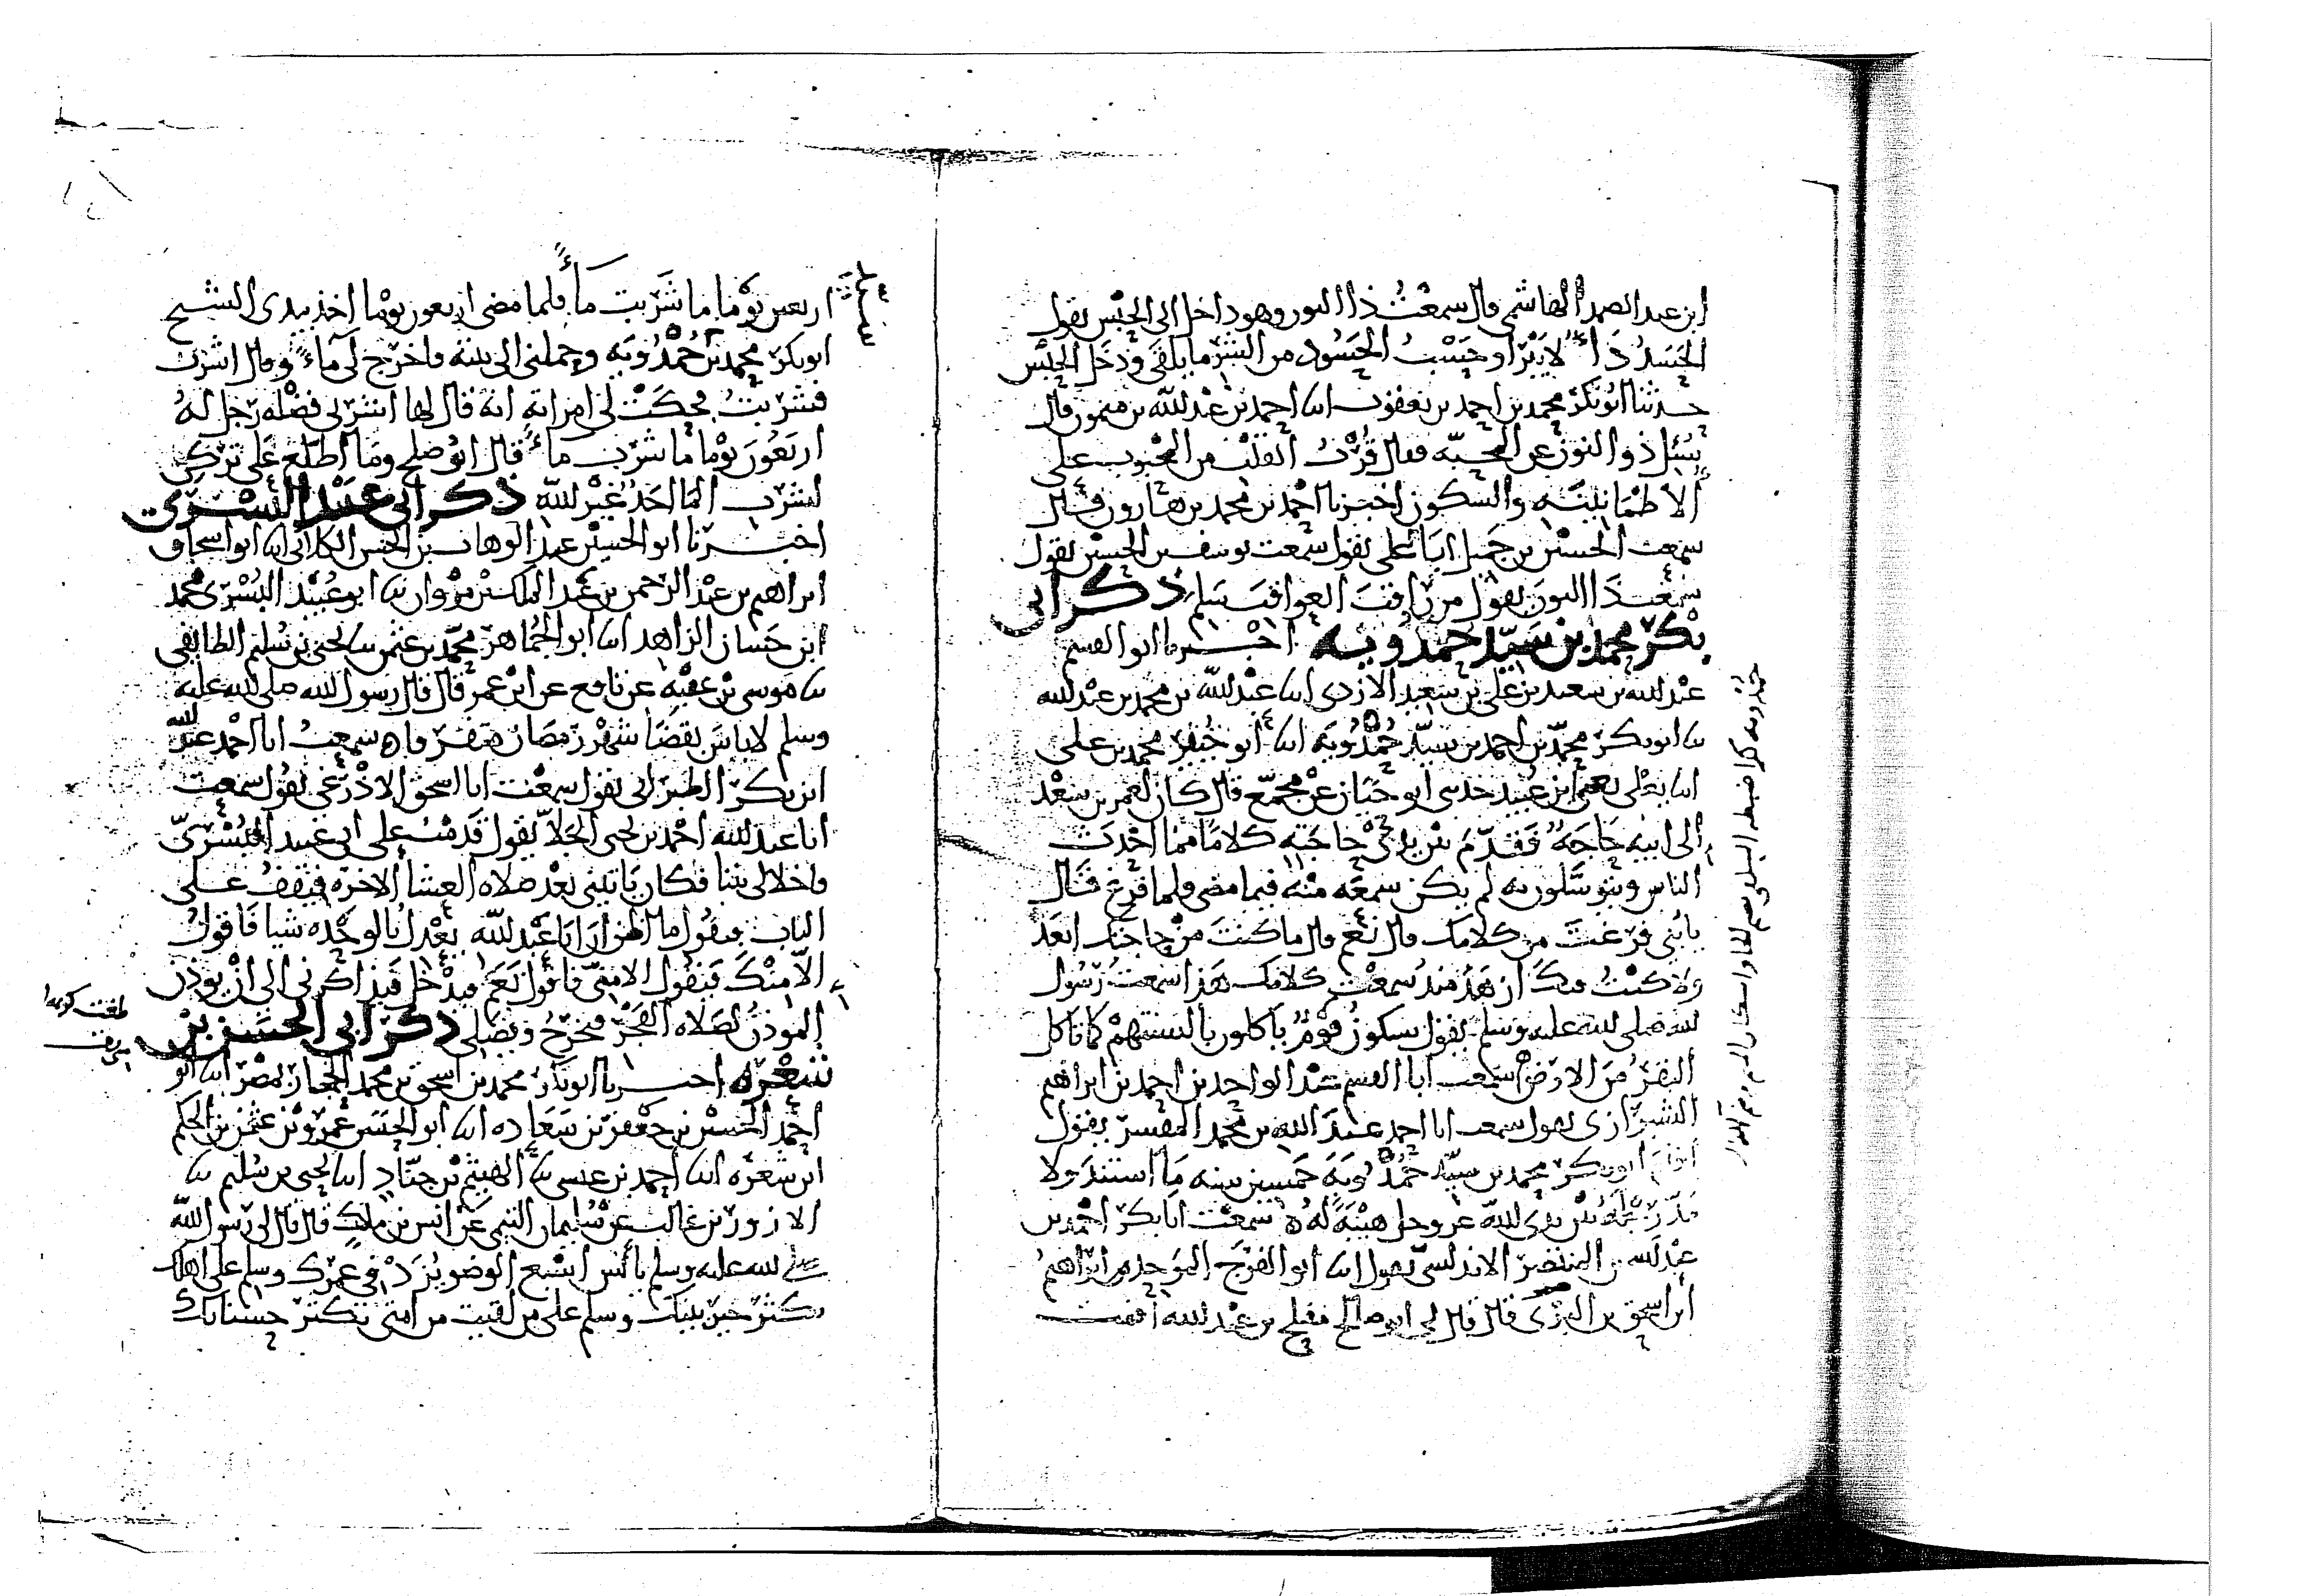 ابن عبد الصمد الهاشمي قال سمعت ذا النور وهو داخل الى الحبس يقول
الحسد داء لا يبرا وحسب الحسود من الشر ما يلقى ودخل الحبس
حدثنا ابو بكر محمد بن احمد بن يعقوب انا احمد بن عبد الله بن ميمون قال
سئل ذو النون عن المحبة فقال قرب القلب من المحبوب على
الاطمانينة والسكون اخبرنا احمد بن محمد بن هارون قال
سمعت الحسين بن جميل ابا على يقول سمعت يوسف بن الحسين يقول
سمعت ذا النون يقول من راقب العواقب سلم ذكر ابي
بكر محمد بن سيد حمدويه اخبرنا ابو القسم
عبد الله بن سعيد بن علي بن سعيد الازدي انا عبد الله بن محمد بن عبد الله
نا ابو بكر محمد بن احمد بن سيد حمدويه انا ابو جعفر محمد بن علي
انا يعلى يعني ابن عبيد حدثني ابو حيان عن مجمع قال كان لعمر بن سعد
الى ابيه حاجة فقدم بين يدي حاجته كلاما مما احدث
الناس ويتوسلون به لم يكن سمعه منه فيما مضى فلما فرغ قال
يا بني فرغت من كلامك قال نعم قال ما كنت من حاجتك ابعد
ولا كنت فيك ازهد منذ سمعت كلامك هذا سمعت رسول
الله صلى الله عليه وسلم يقول سيكون قوم ياكلون بالسنتهم كما تاكل
البقر من الارض سمعت ابا القسم عبد الواحد بن احمد بن ابراهيم
الشيرازي يقول سمعت ابا احمد عبد الله بن محمد المفسر يقول
اقام ابو بكر محمد بن سيد حمدويه خمسين سنة ما استند ولا
مد رجله بين يدي الله عز وجل هيبة له سمعت ابا بكر احمد بن
عبد الله بن المنتصر الاندلسي يقول انا ابو الفرج الموحد بن ابراهيم
ابن اسحق بن البري قال قال لي ابو صالح مفلح بن عبد الله اقمت
اربعين يوما ما شربت ماء فلما مضى اربعون يوما اخذ بيدي الشيخ
ابو بكر محمد بن حمدويه وحملني الى بيته فاخرج لي ماء وقال اشرب
فشربت فحكت لي امراته انه قال لها اشربي فضله رجل له
اربعون يوما ما شرب ماء قال ابو صلح وما اطلع على تركي
لشرب الما احد غير الله ذكر ابي عبيد البسري
اخبرنا ابو الحسين عبد الوهاب بن الحسن الكلابي انا ابو اسحاق
ابراهيم بن عبد الرحمن بن عبد الملك بن مروان نا ابو عبيد البسري محمد
ابن حسان الزاهد انا ابو الجماهر محمد بن عثمن نا يحيى بن سليم الطايفي
نا موسى بن عقبة عن نافع عن ابن عمر قال قال رسول الله صلى الله عليه
وسلم لا باس بقضا شهر رمضان متفرقا سمعت ابا احمد عبد الله
ابن بكر الطبراني يقول سمعت ابا اسحق الاذرعي يقول سمعت
ابا عبد الله احمد بن يحيى الجلا يقول قدمت على ابي عبيد البسري
فاخلا لي بيتا فكان ياتيني بعد صلاه العشا الاخره فيقف على
الباب فيقول ما اظن ان ابا عبد الله يعدل بالوحده شيا فاقول
الا منك فيقول الا مني فاقول نعم فيدخل فيذاكرني الى ان يوذن
الموذن لصلاه الفجر فيخرج ويصلي ذكر ابي الحسن بن
شعره اخبرنا ابو بكر محمد بن اسحق بن محمد الحجاز بمصر انا ابو
احمد الحسين بن جعفر بن سعاده انا ابو الحسن عمرو بن عثمن بن الحكم
ابن شعره انا احمد بن عيسى نا الهيثم بن جناد انا يحيى بن سليم نا
الازور بن غالب عن سليمان التيمي عن انس بن ملك قال قال لي رسول الله
صلى الله عليه وسلم يا انس اسبغ الوضو يزد في عمرك وسلم على اهلك
يكثر خير بيتك وسلم على من لقيت من امتي تكثر حسناتك